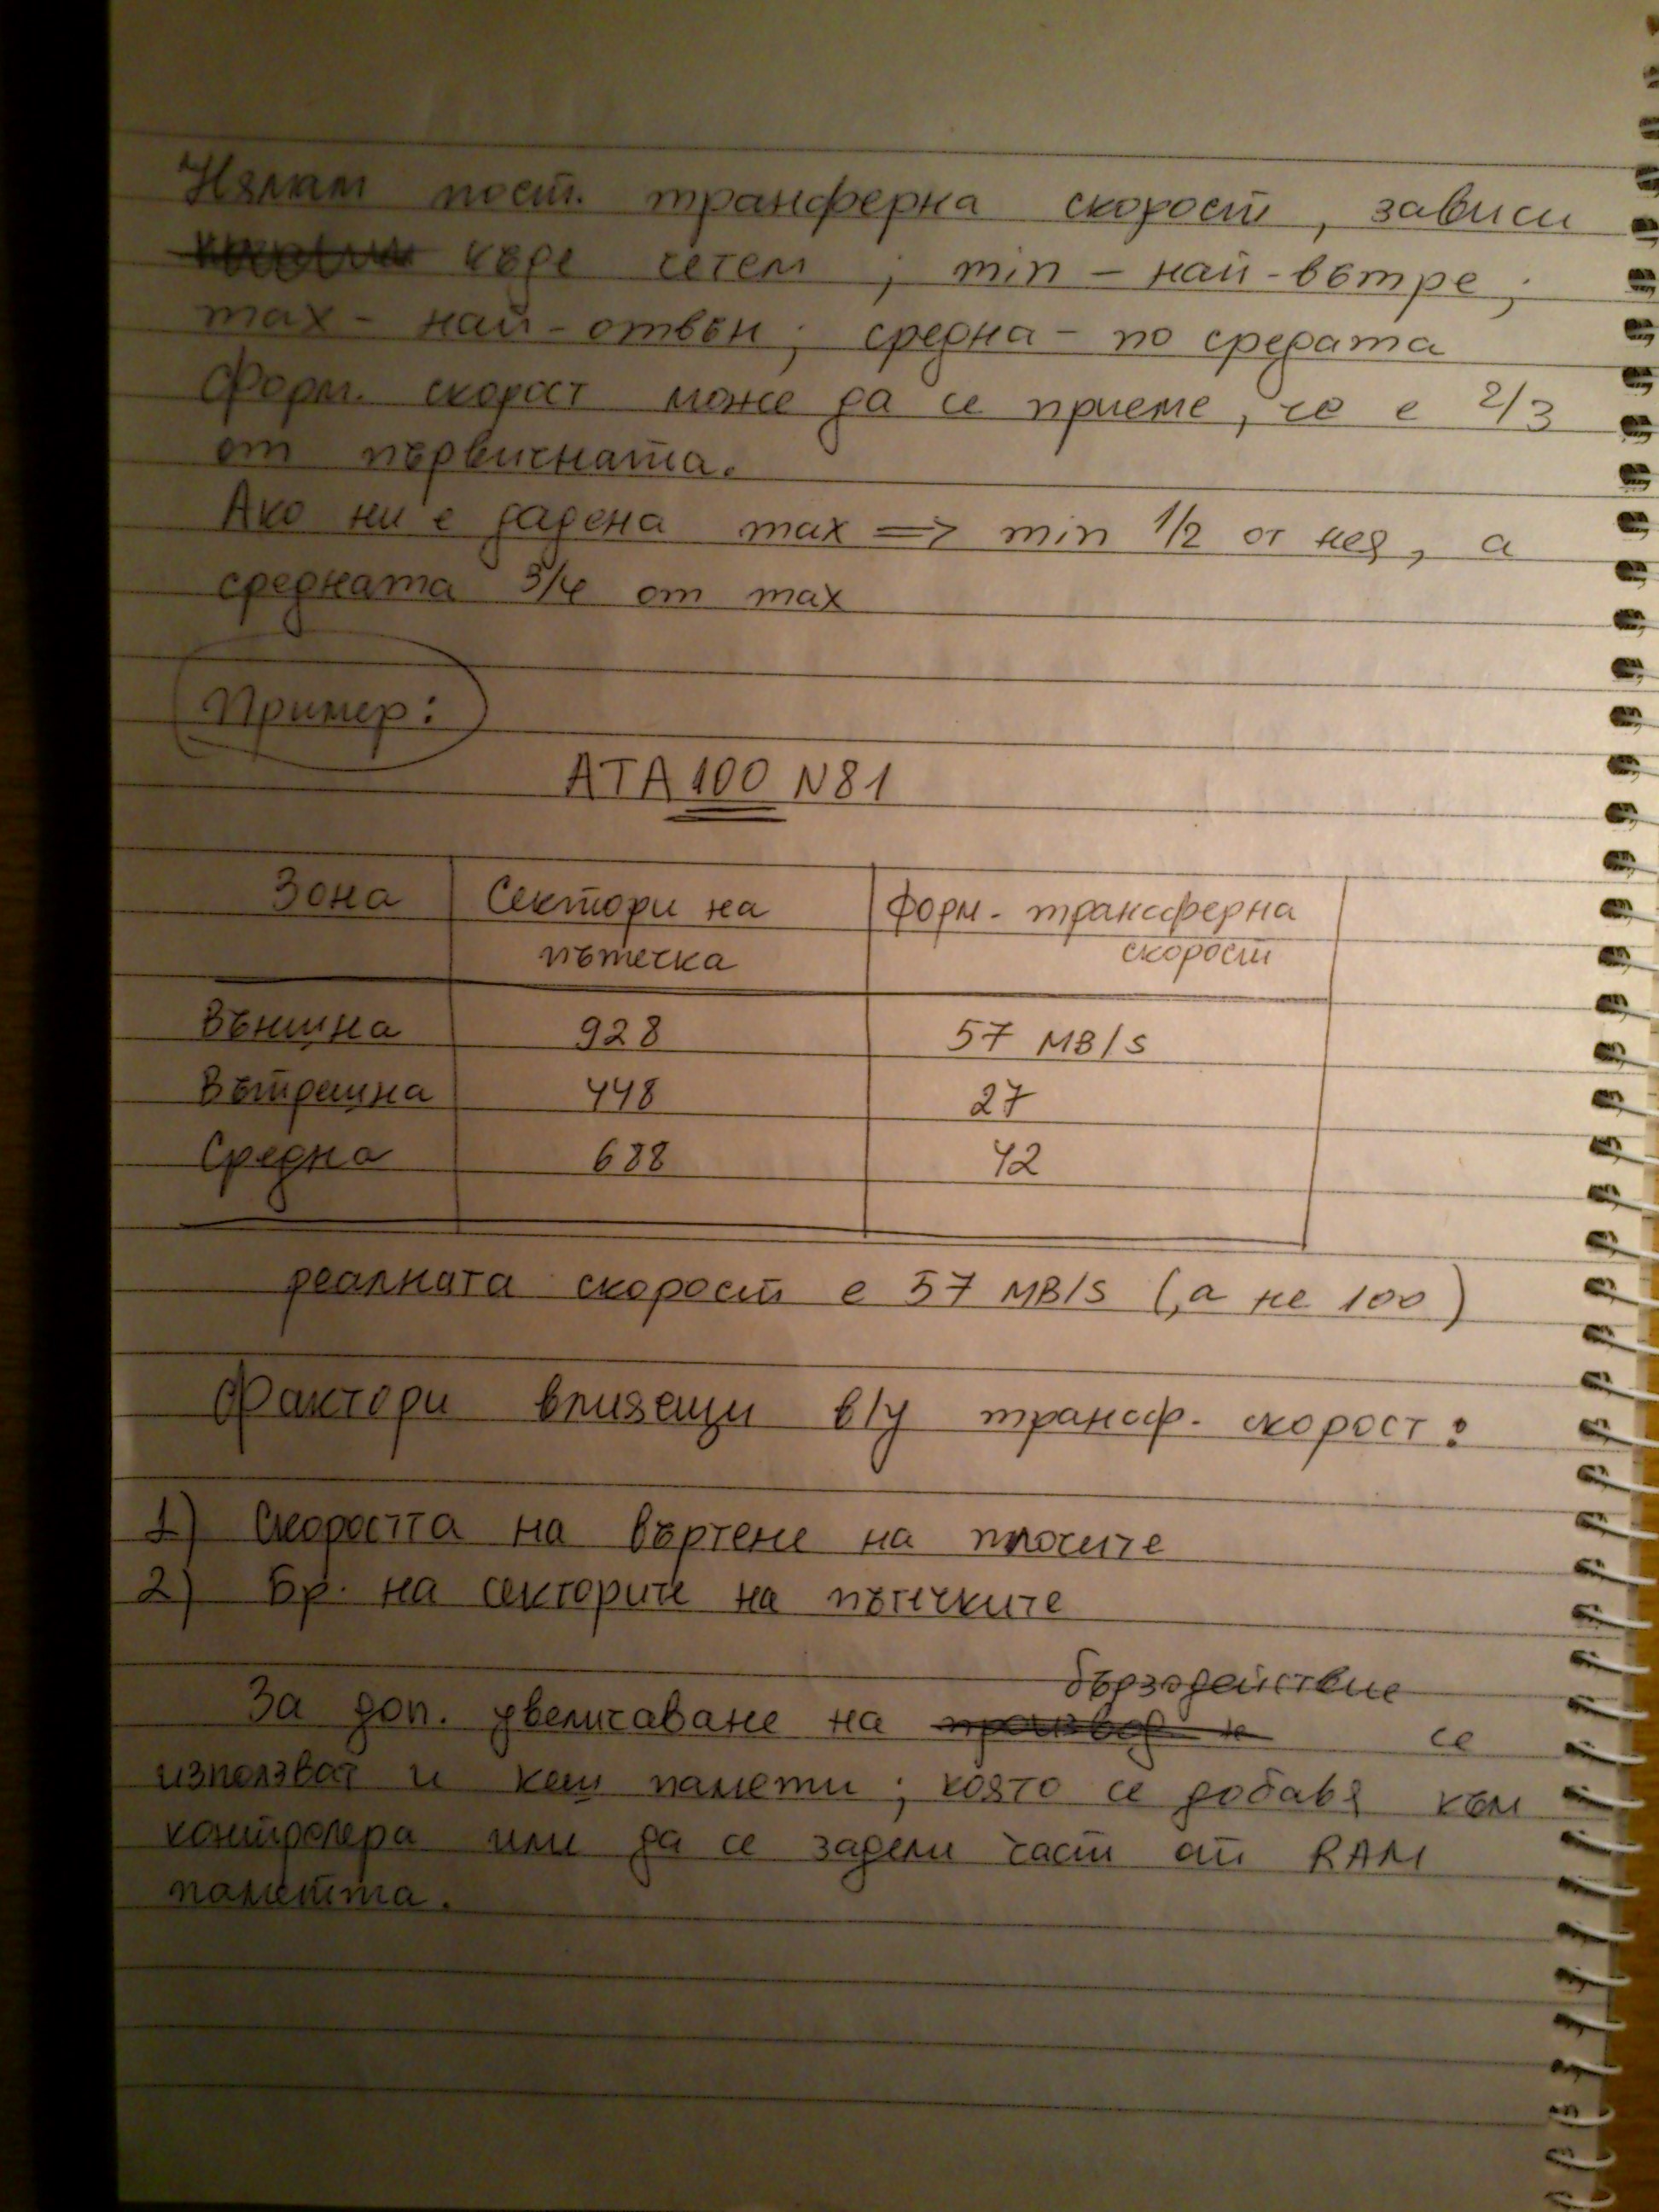 Нямам пост. трансферна скорост, зависи
къде четем ; min - най-вътре ;
max - най-отвън ; средна - по средата
Форм. скорост може да се приеме, че е 2/3
от първичната.
Ако ни е дадена max => min 1/2 от нея, а
средната 3/4 от max
Пример:
ATA 100 N81
Зона Сектори на Форм. трансферна
пътечка скорост
Външна 928 57 MB/s
Вътрешна 448 27
Средна 688 42
реалната скорост е 57 MB/s (,а не 100)
Фактори влияещи в/у трансф. скорост:
1) Скоростта на въртене на плочите
2) Бр. на секторите на пътечките
бързодействие
За доп. увеличаване на се
използват и кеш памети ; която се добавя към
контролера или да се задели част от RAM
паметта.